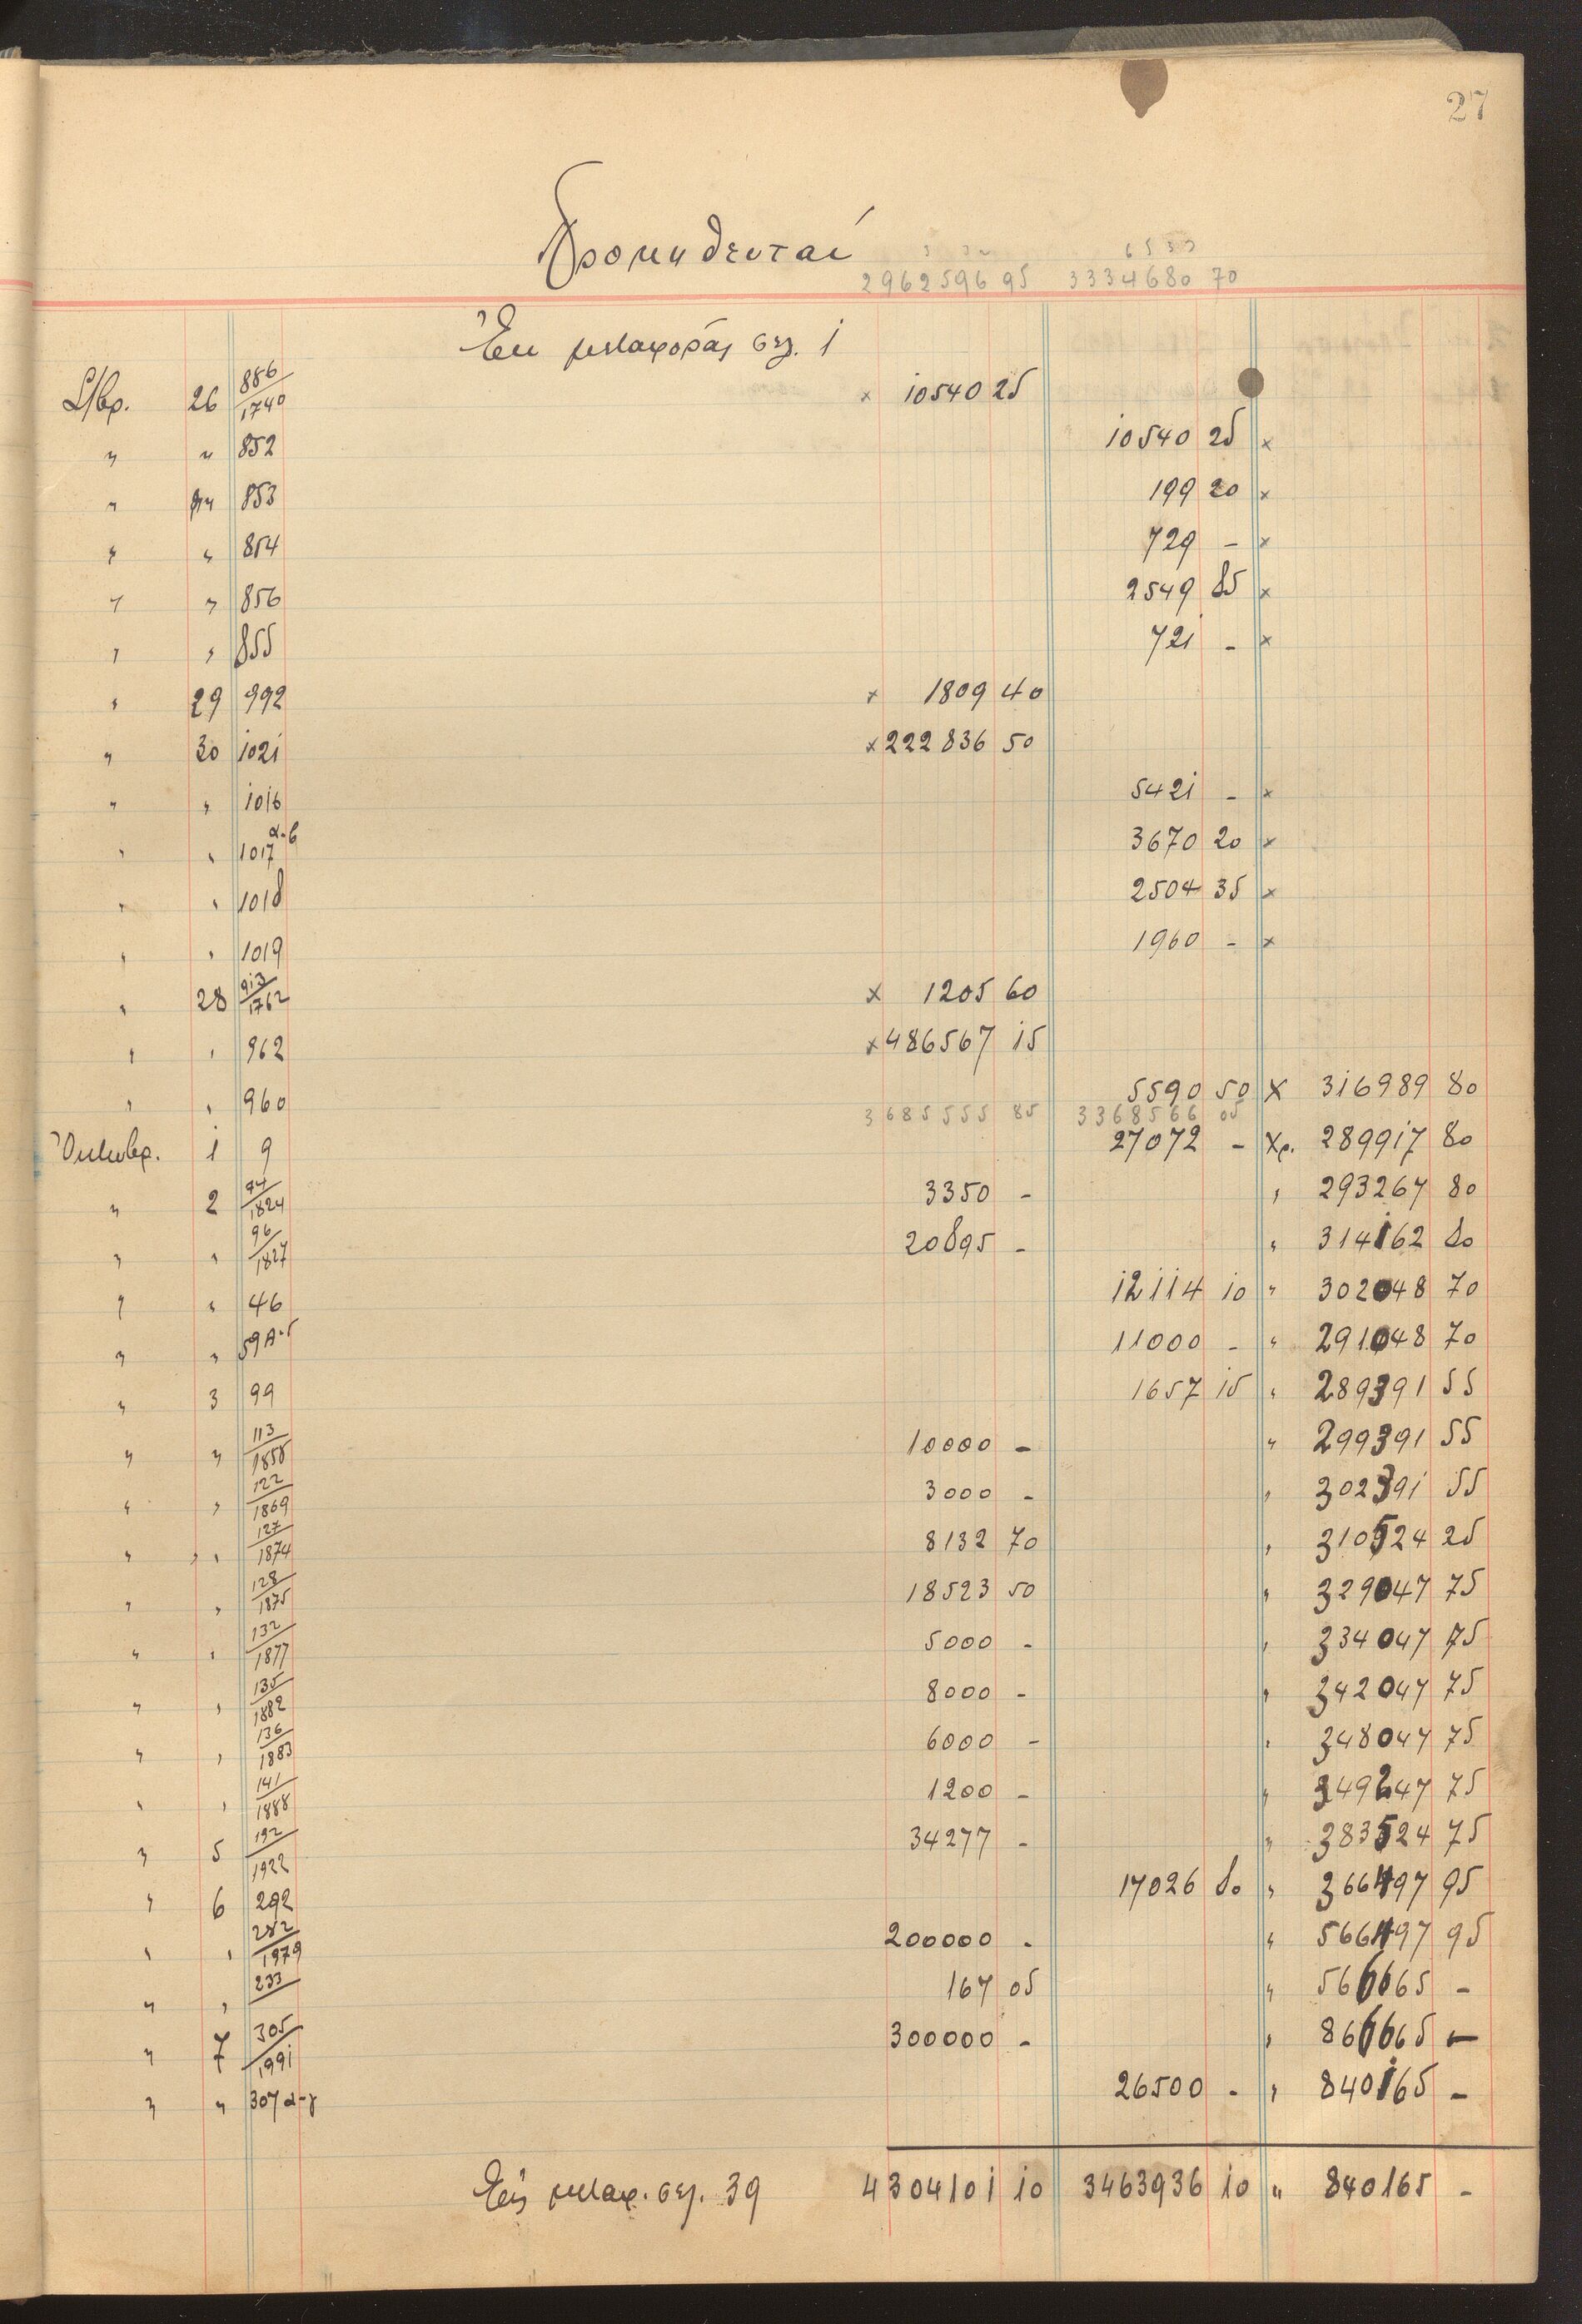 27
Προμηθευταί
2962596 95 3334680 70
Ἐκ μεταφορᾶς σελ. 1
S/βρ. 26 886/1740 × 10540 25
" " 852 10540 25 ×
" " 853 199 20 ×
" " 854 729 - ×
" " 856 2549 85 ×
" " 855 721 - ×
" 29 992 × 1809 40
" 30 1021 × 222836 50
" " 1016 5421 - ×
" " 1017 α-β 3670 20 ×
" " 1018 2504 35 ×
" " 1019 1960 - ×
" 28 913/1762 × 1205 60
" " 962 × 486567 15
" " 960 5590 50 Χ 316989 80
3685555 85 3368566 05
Ὀκτωβρ. 1 9 27072 - Χρ. 289917 80
" 2 94/1824 3350 - " 293267 80
" " 96/1827 20895 - " 314162 80
" " 46 12114 10 " 302048 70
" " 59 11000 - " 291048 70
" 3 99 1657 15 " 289391 55
" " 113/1858 10000 - " 299391 55
" " 122/1869 3000 - " 302391 55
" " 127/1874 8132 70 " 310524 25
" " 128/1875 18523 50 " 329047 75
" " 132/1877 5000 - " 334047 75
" " 135/1882 8000 - " 342047 75
" " 136/1883 6000 - " 348047 75
" " 141/1888 1200 - " 349247 75
" 5 192/1922 34277 - " 383524 75
" 6 292 17026 80 " 366497 95
" " 282/1979 200000 - " 566497 95
" " 233 167 05 " 566665 -
" 7 305/1991 300000 - " 866665 -
" " 307 α-γ 26500 - " 840165 -
Εἰς μεταφ. σελ. 39 4304101 10 3463936 10 " 840165 -